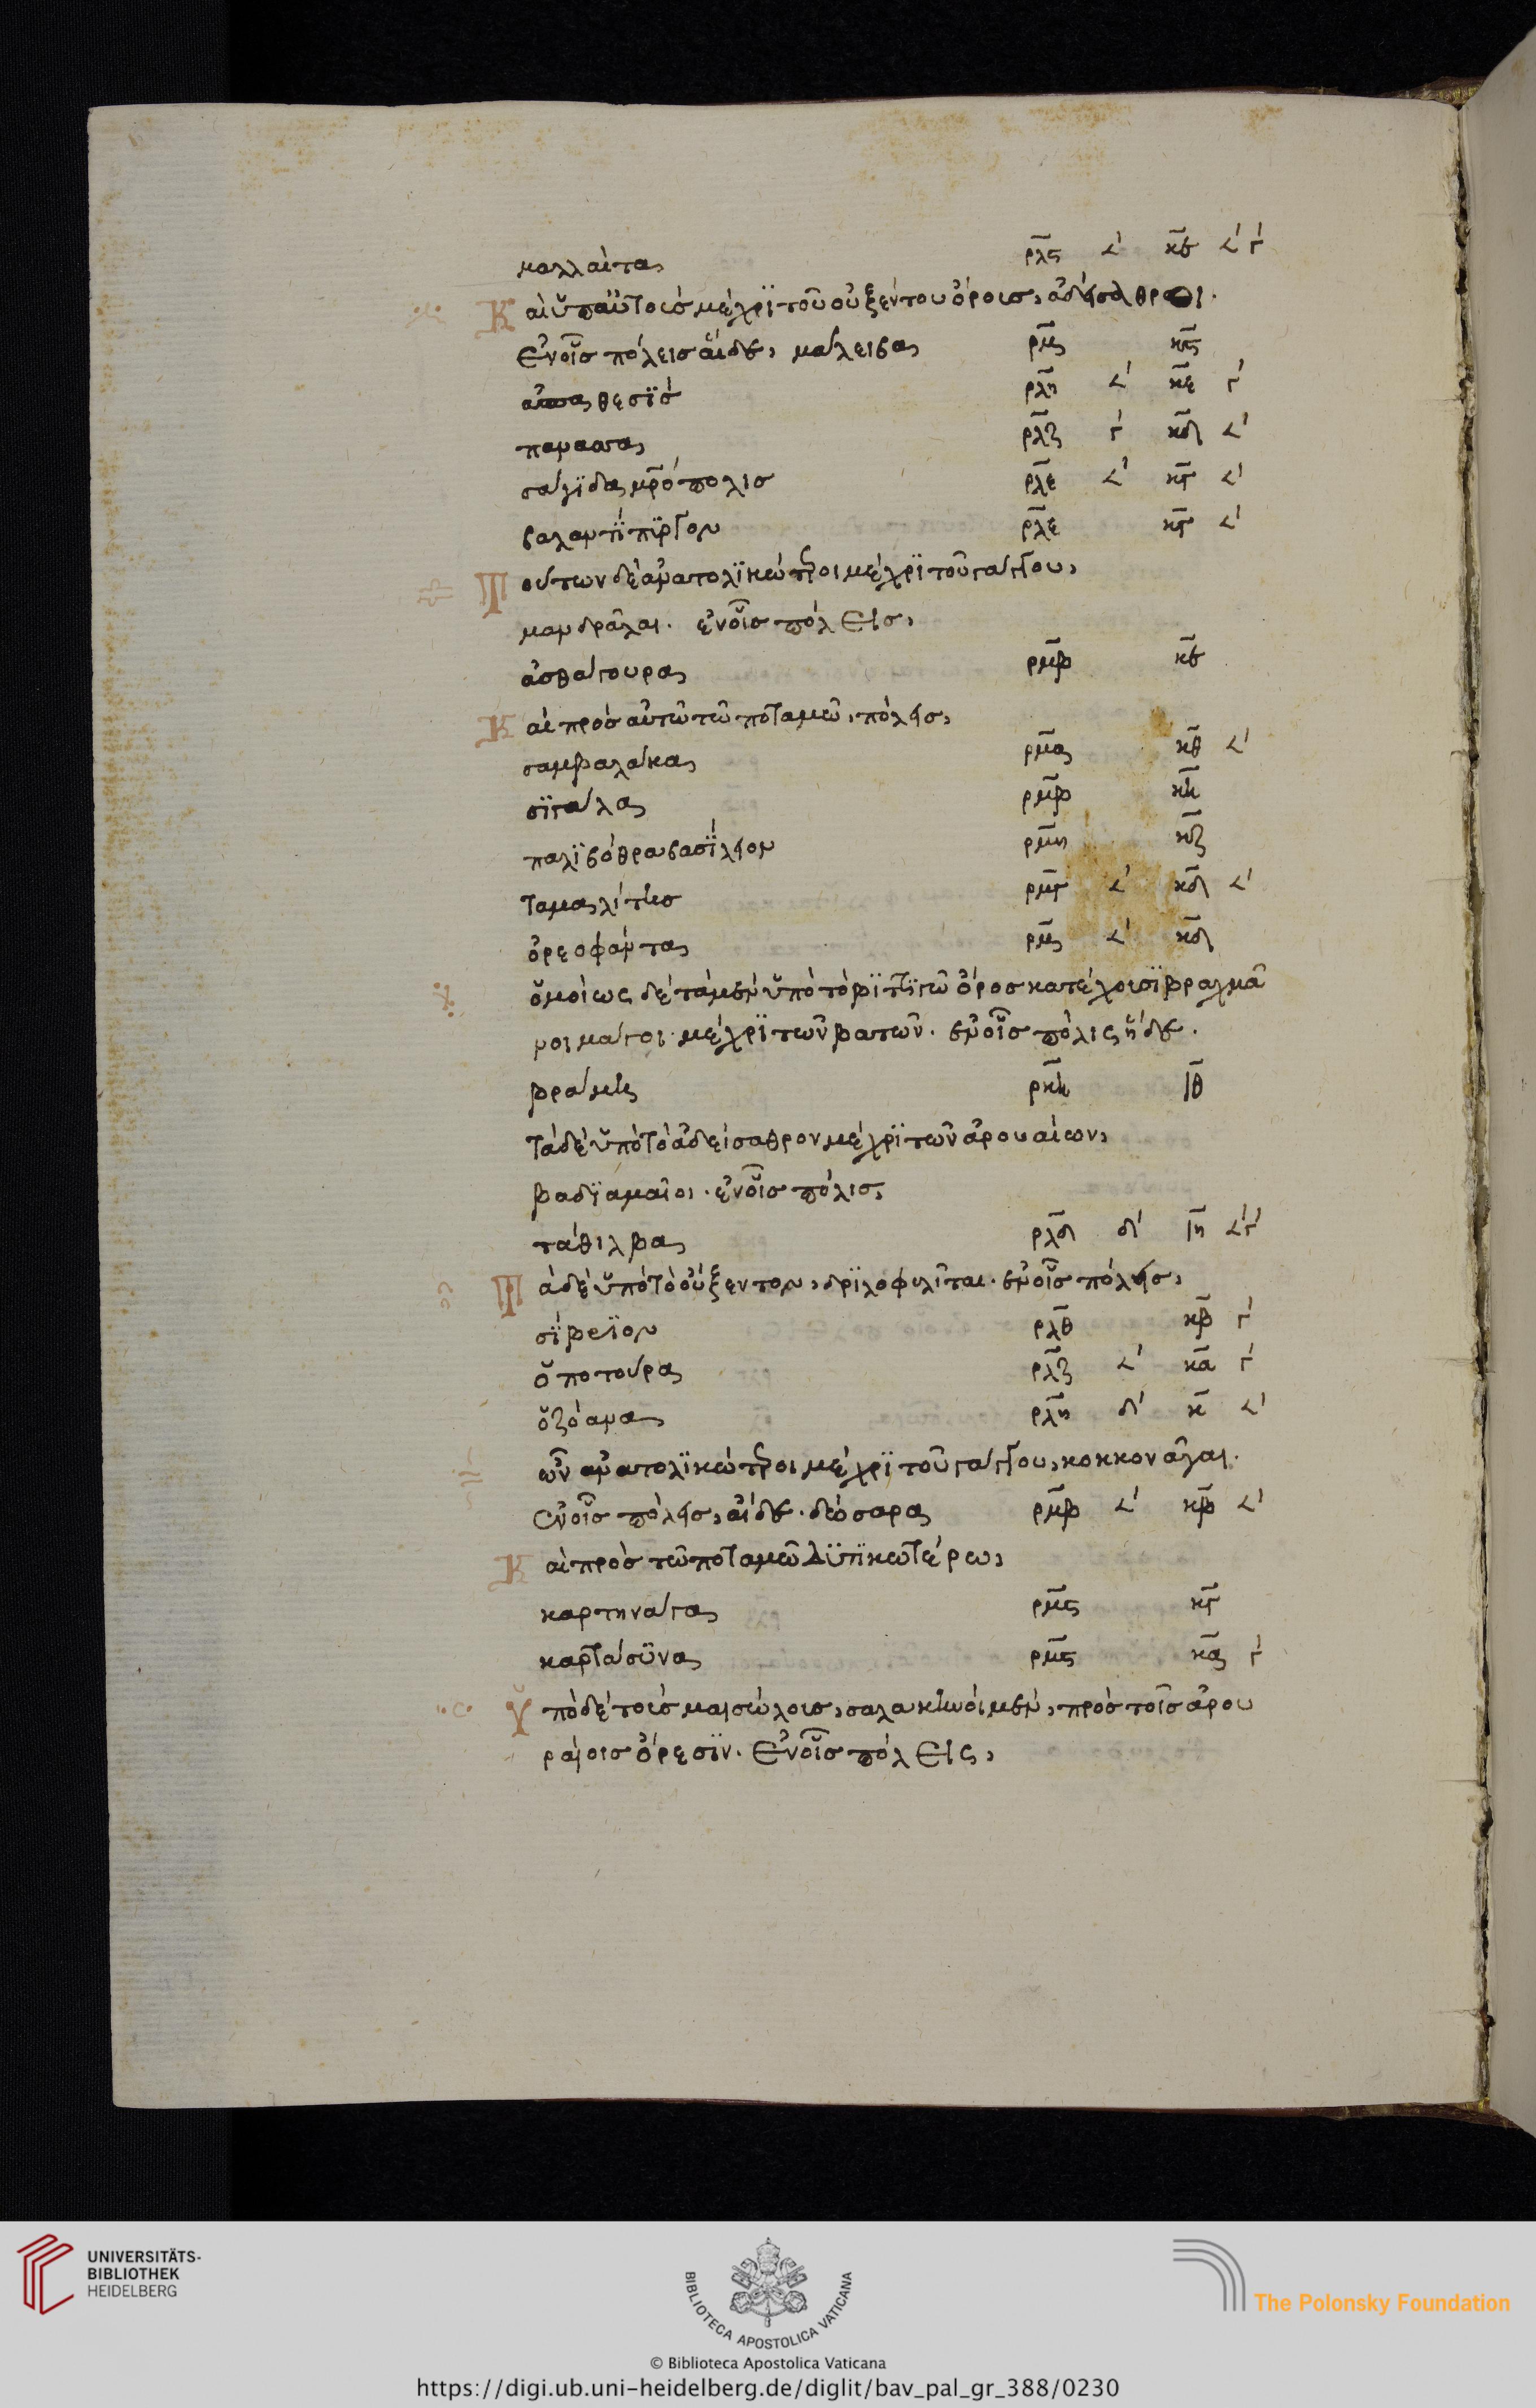 μαλλαίτα ρλς 𐅵 κε 𐅵 γ
Καὶ ὑπ' αὐτοὺς μέχρι τοῦ οὐξέντου ὄρους, ἀδείσαθροι.
ἐν οἷς πόλεις αἵδε, μάλειβα ρμ κζ
θεσὶς ρλη 𐅵 κε γ
παμασσα ρλζ γ κδ 𐅵
σαγίδα μρόπολις ρλε 𐅵 κγ 𐅵
βαλαντίπυργον ρλε κγ 𐅵
Τούτων δὲ ἀνατολικώτεροι μέχρι τοῦ γάγγου,
μανδράλαι. ἐν οἷς πόλεις,
ἀσθάγουρα ρμβ κε
Καὶ πρὸς αὐτῶ τῶ ποταμῶ, πόλεις,
σαμβαλάκα ρμα κθ 𐅵
σιγάλλα ρμβ κη
παλιβόθρα βασίλειον ρμγ κζ
ταμαλίτης ρμγ 𐅵 κδ 𐅵
ὀρεοφάντα ρμς 𐅵 κδ
ὁμοίως δὲ τὰ μὲν ὑπὸ τὸ βίττιγω ὄρος κατέχουσι βραχμα
νοι μάγοι μέχρι τῶν βατῶν. ἐν οἷς πόλις ἥδε.
βράμη ρκη ιθ
τὰ δὲ ὑπὸ τὸ ἀδείσαθρον μέχρι τῶν ἀρουαίων,
βαδιαμαῖοι. ἐν οἷς πόλις,
τάθιλβα ρλδ δ ιη 𐅵 γ
Τὰ δὲ ὑπὸ τὸ οὔξεντον, δριλοφυλῖται. ἐν οἷς πόλεις,
σίβριον ρλθ κβ γ
ὀποτούρα ρλζ 𐅵 κα γ
ὀζόαμα ρλη δ κ 𐅵
ὧν ἀνατολικώτεροι μέχρι τοῦ γάγγου, κοκκονάγαι.
ἐν οἷς πόλεις, αἵδε. δόσαρα ρμβ 𐅵 κβ 𐅵
Καὶ πρὸς τῶ ποταμῶ δυτικωτέρω,
καρτινάγα ρμς κγ
καρτάσυνα ρμς κα γ
Ὑπὸ δὲ τοὺς μαισώλους, σαλακηνοὶ μὲν, πρὸς τοῖς ἀρου
ραίοις ὄρεσιν. ἐν οἷς πόλεις,
UNIVERSITÄTS-
BIBLIOTHEK
HEIDELBERG
BIBLIOTECA APOSTOLICA VATICANA
The Polonsky Foundation
© Biblioteca Apostolica Vaticana
https://digi.ub.uni-heidelberg.de/diglit/bav_pal_gr_388/0230